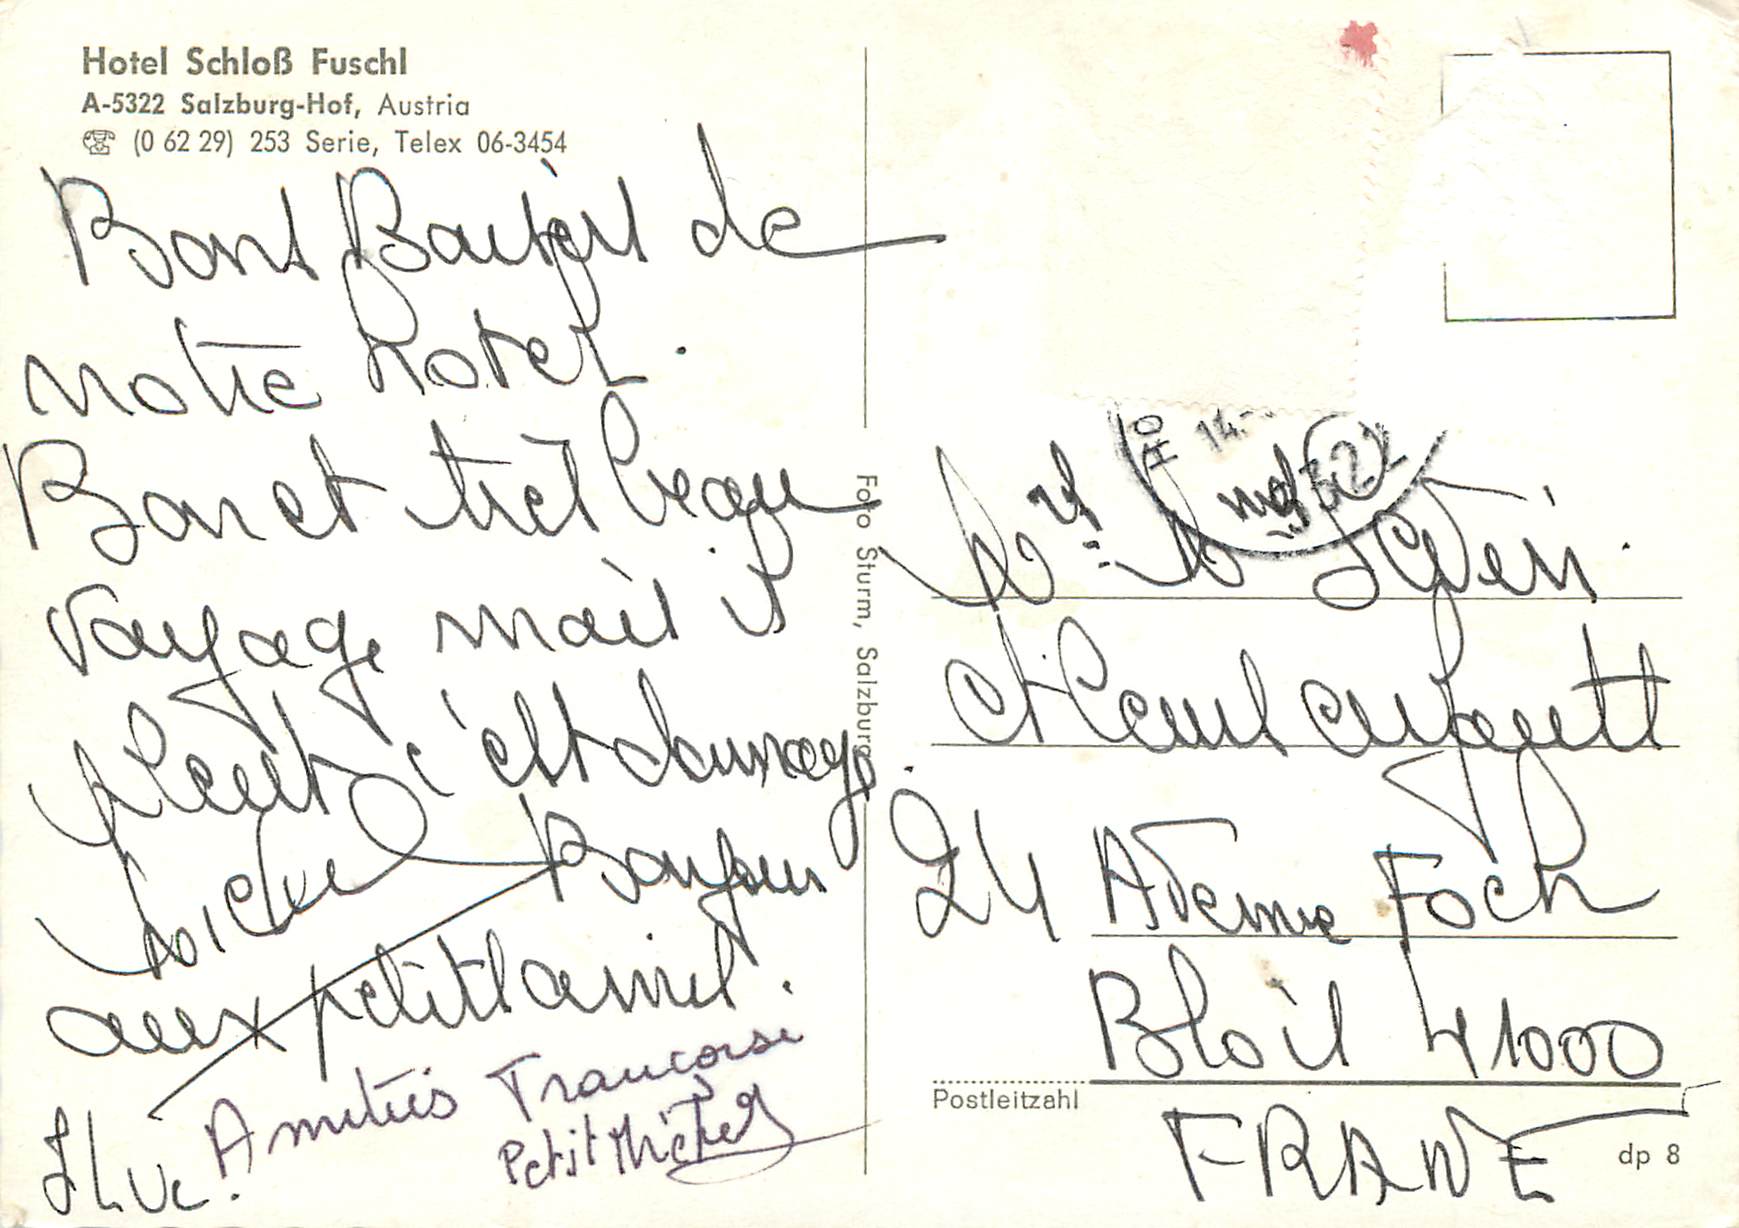 Hotel Schloß Fuschl
A-5322 Salzburg-Hof, Austria
☏ (0 62 29) 253 Serie, Telex 06-3454
Bons Baisers de
notre hotel.
Bon et très beau
voyage mais il
pleut c'est dommage.
Michel Bonjour
aux petits amis.
Amitiés Françoise
Petit Michel
Foto Sturm, Salzburg
HO
14.
5322
Mr Md
et leurs enfants
24 Avenue Foch
Blois 41000
Postleitzahl
FRANCE
dp 8